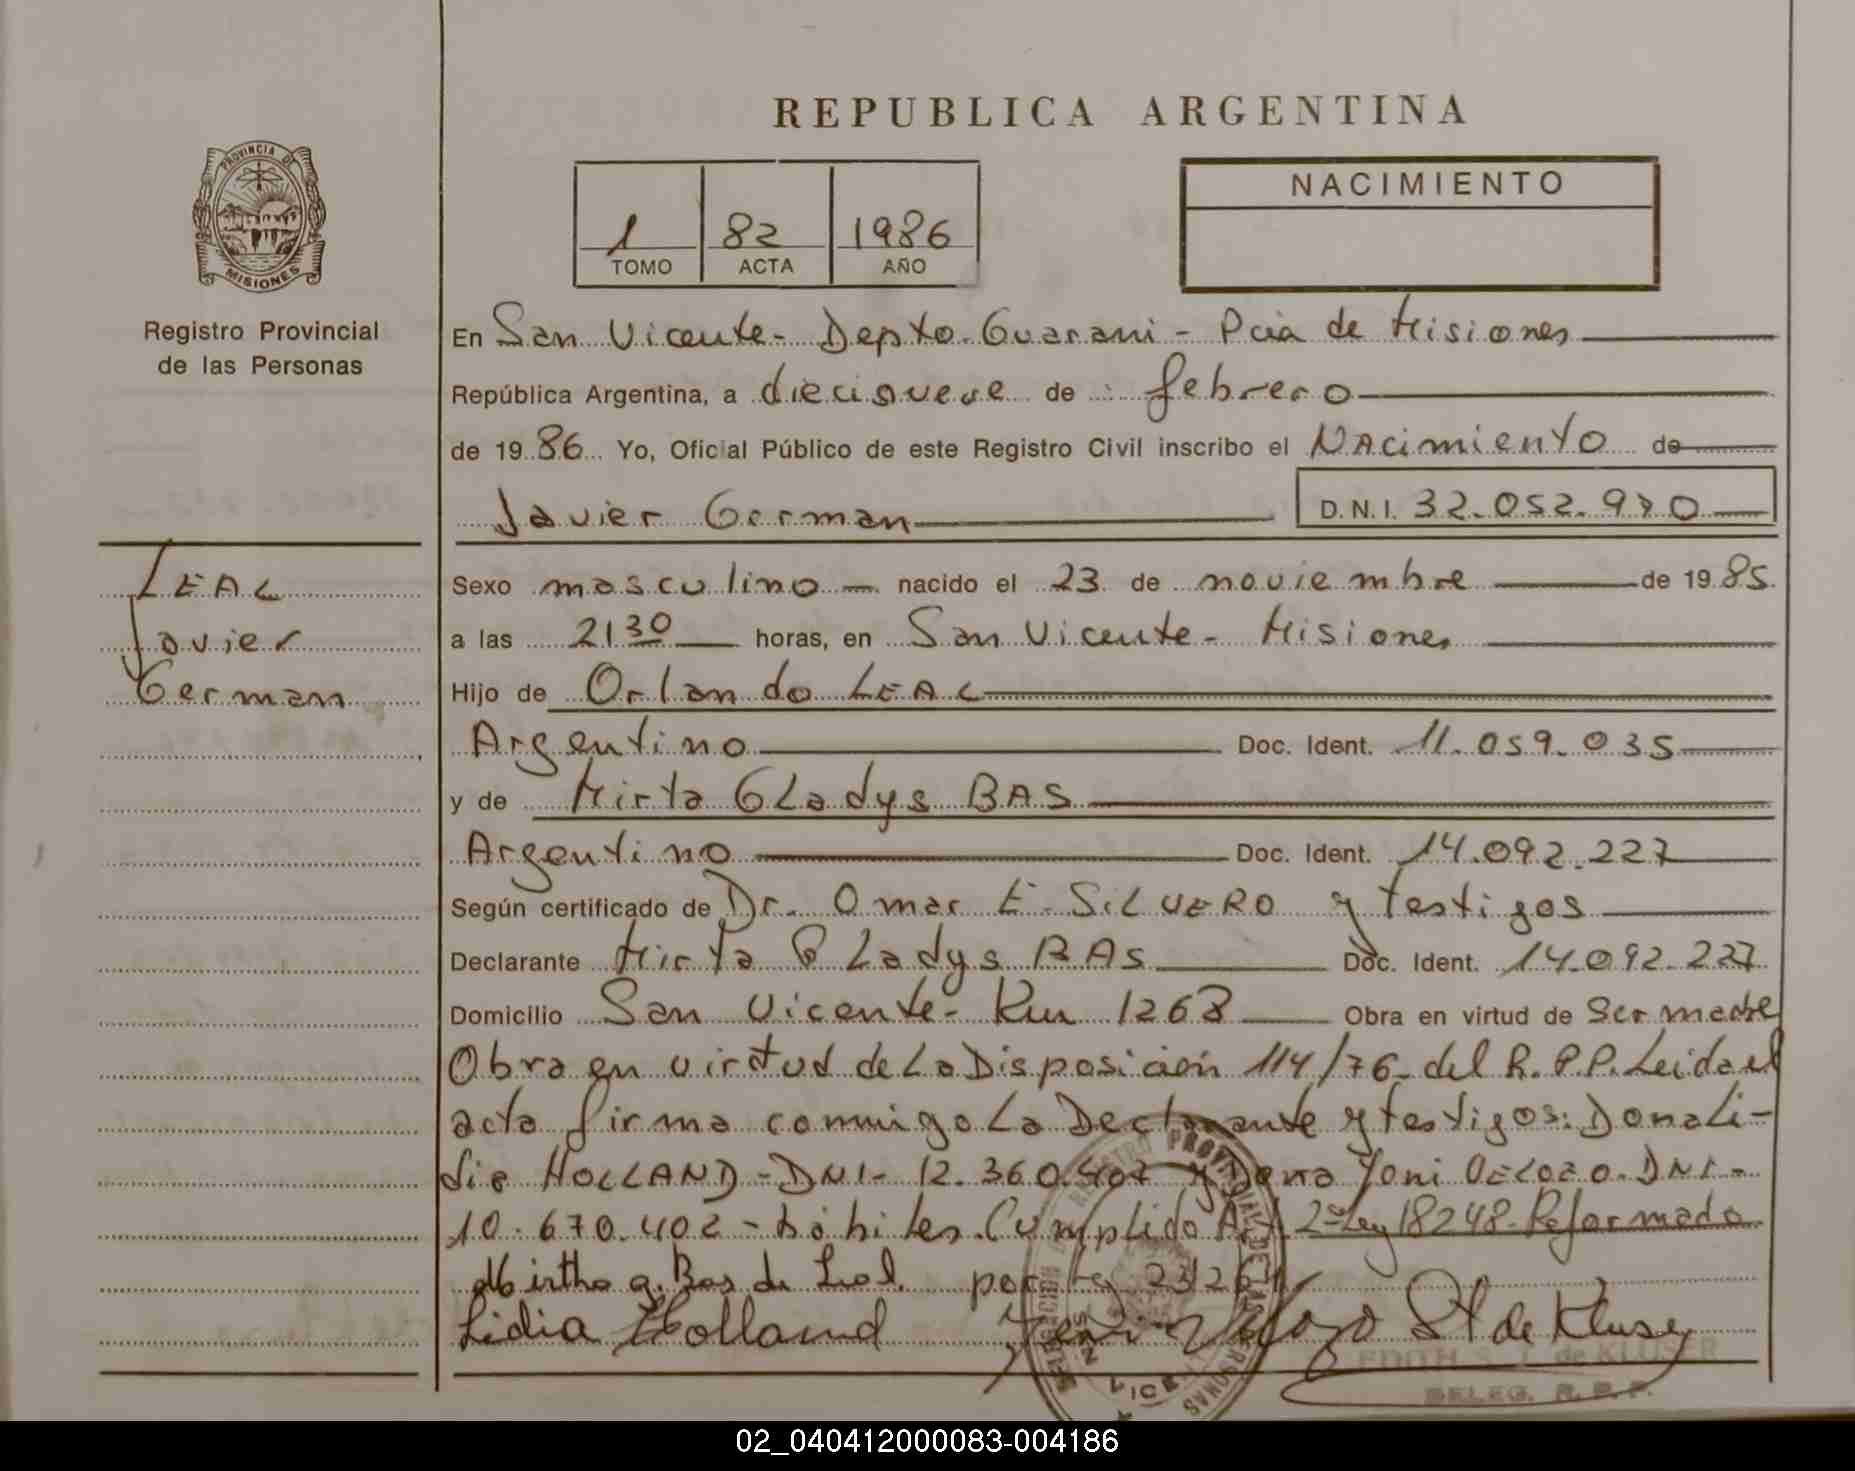 REPUBLICA ARGENTINA
PROVINCIA DE
MISIONES
Registro Provincial
de las Personas
1 82 1986
TOMO ACTA AÑO
NACIMIENTO
En San Vicente - Depto. Guarani - Pcia de Misiones
República Argentina, a diecisveve de febrero
de 1986 Yo, Oficial Público de este Registro Civil inscribo el Nacimiento de
Javier German D.N.I. 32.052.970
LEAL
Javier
German
Sexo masculino nacido el 23 de noviembre de 1985
a las 21 30 horas, en San Vicente - Misiones
Hijo de Orlando LEAL
Argentino Doc. Ident. 11.059.035
y de Mirta GLadys BAS
Argentino Doc. Ident. 14.092.227
Según certificado de Dr. Omar E. SiLVERO y Testigos
Declarante Mirta GLadys BAS Doc. Ident. 14.092.227
Domicilio San Vicente - Km 1268 Obra en virtud de Ser madre
Obra en virtud de La Disposición 114/76 del R.P.P. Leida el
acta firma conmigo La Declarante y testigos: Dona Li-
dia HOLLAND - DNI - 12.360.407 y Dona Yoni DNI -
10.670.402 - hábiles. Cumplido Art 2º Ley 18248 Reformado
Mirtha g. Bas de Leal. por Ley 23126
Lidia Holland St de Kluser
EDITH S. T. de KLUSER
DELEG. R. P. P.
REGISTRO PROVINCIAL DE LAS PERSONAS
SAN VICENTE
02_040412000083-004186